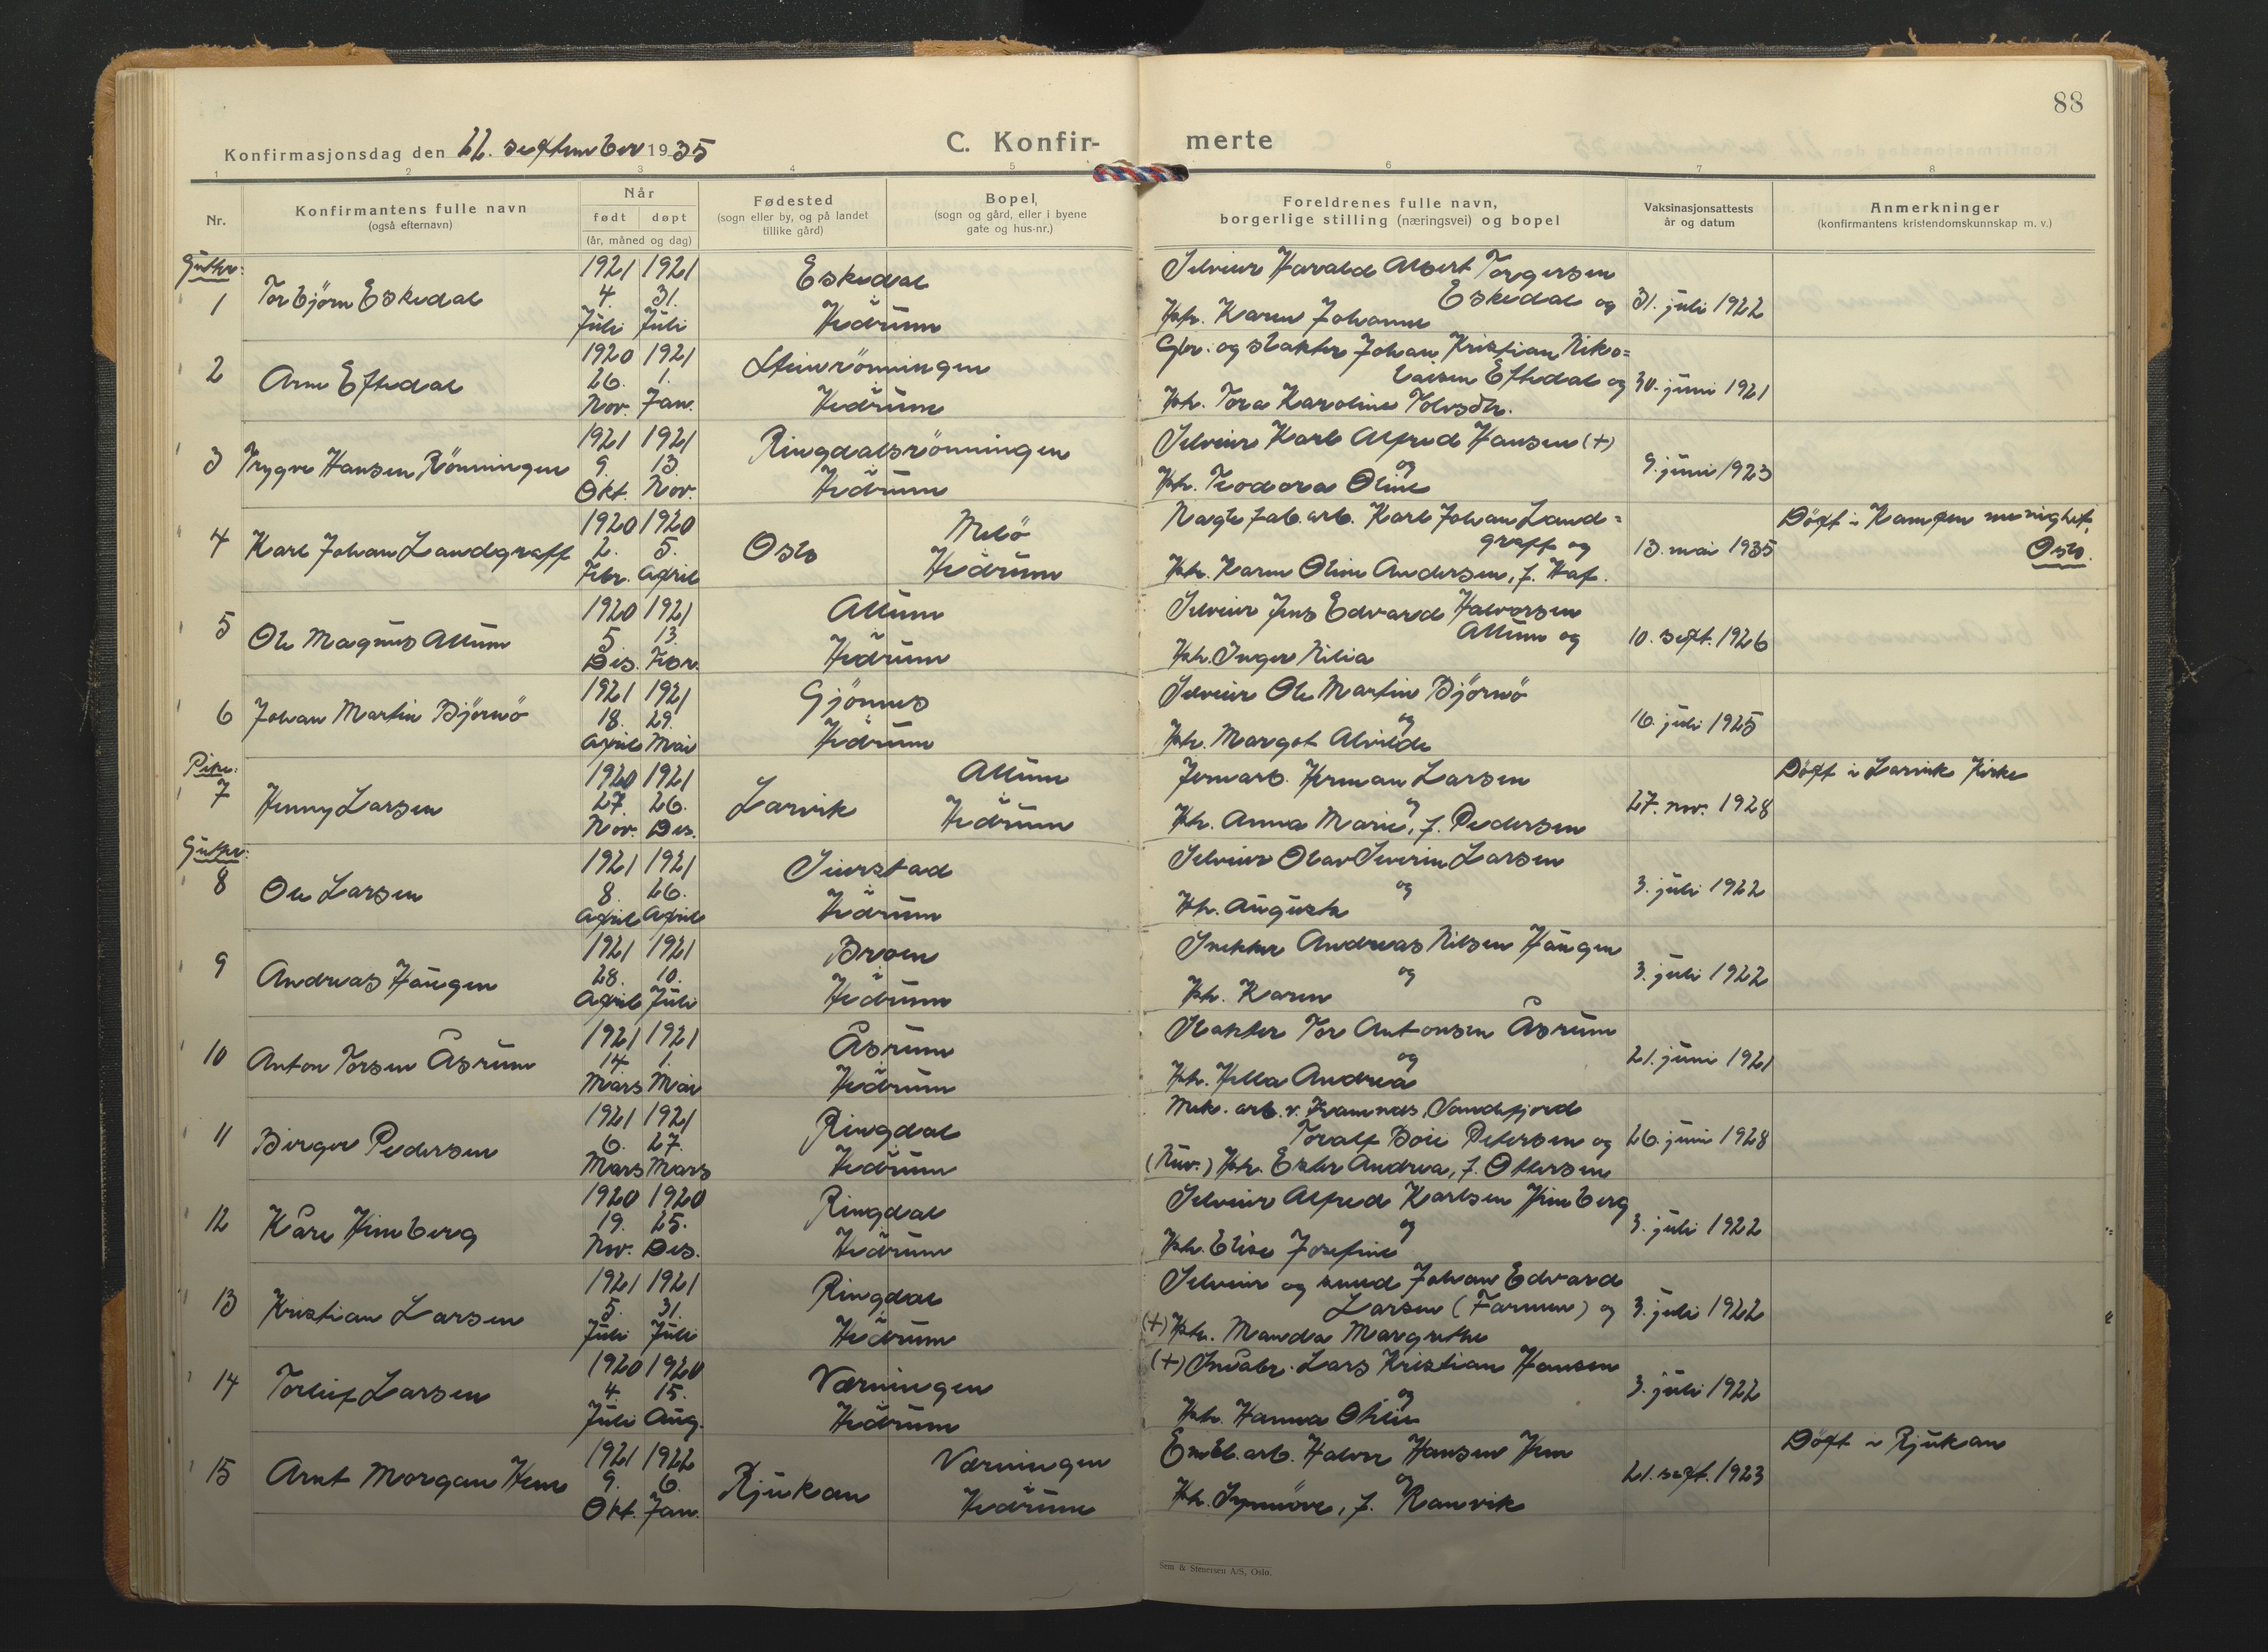 88
Konfirmasjonsdag den 22. september 1935
C. Konfir- merte
1 2 3 4 5 6 7 8
Nr.
Konfirmantens fulle navn
(også efternavn)
Når
født døpt
(år, måned og dag)
Fødested
(sogn eller by, og på landet
tillike gård)
Bopel,
(sogn og gård, eller i byene
gate og hus-nr.)
Foreldrenes fulle navn,
borgerlige stilling (næringsvei) og bopel
Vaksinasjonsattests
år og datum
Anmerkninger
(konfirmantens kristendomskunnskap m. v.)
Gutter:
1 Torbjørn Eskedal
1921 1921
4. 31.
Juli Juli
Eskedal
Hedrum
Selveier Harald Albert Torgersen
Eskedal og
Htr. Karen Johanne
31. juli 1922
2 Arne Eftedal
1920 1921
26. 1.
Nov. Jan.
Steinrönningen
Hedrum
Gbr. og slakter Johan Kristian Niko=
laisen Eftedal og
Htr. Tora Karoline Tolvsdtr.
30. juni 1921
3 Trygve Hansen Rönningen
1921 1921
9. 13.
Okt. Nov.
Ringdalsrönningen
Hedrum
Selveier Karl Alfred Hansen (+)
og
Htr. Teodora Oline
9. juni 1923
4 Karl Johan Landgraff
1920 1920
2. 5.
Febr. April
Oslo
Melö
Hedrum
Nagle fab. arb. Karl Johan Land=
graff og
Htr. Karen Oline Andersen, f. Haf.
13. mai 1935
Döpt i Kampen menighet,
Oslo.
5 Ole Magnus Allum
1920 1921
5 13.
Des. Febr.
Allum
Hedrum
Selveier Jens Edvard Halvorsen
Allum og
Htr. Inger Nilia
10. sept. 1926
6 Johan Martin Björnö
1921 1921
18. 29.
April Mai
Gjönnes
Hedrum
Selveier Ole Martin Björnö
og
Htr. Margot Alvilde
16. juli 1925
Piker:
7 Henny Larsen
1920 1921
27. 26.
Nov. Des.
Larvik
Allum
Hedrum
Jernarb. Herman Larsen
og
Htr. Anna Marie, f. Pedersen
27. nov. 1928
Döpt i Larvik kirke
Gutter:
8 Ole Larsen
1921 1921
8. 26.
April April
Seierstad
Hedrum
Selveier Olav Severin Larsen
og
Htr. Augusta
3. juli 1922
9 Andreas Haugen
1921 1921
28. 10.
April Juli
Broen
Hedrum
Snekker Andreas Nilsen Haugen
og
Htr. Karen
3. juli 1922
10 Anton Torsen Åsrum
1921 1921
14. 1.
Mars Mai
Åsrum
Hedrum
Slakter Tor Antonsen Åsrum
og
Htr. Hella Andrea
21. juni 1921
11 Birger Pedersen
1921 1921
6. 27.
Mars Mars
Ringdal
Hedrum
Mek. arb. v. Framnæs, Sandefjord
Toralf Boie Petersen og
(Nuv.) Htr. Ester Andrea, f. Ottersen
26. juni 1928
12 Kåre Himberg
1920 1920
19. 25.
Nov. Des.
Ringdal
Hedrum
Selveier Alfred Karlsen Himberg
og
Htr. Elise Josefine
3. juli 1922
13 Kristian Larsen
1921 1921
5. 31.
Juli Juli
Ringdal
Hedrum
Selveier og smed Johan Edvard
Larsen (Farmen) og
(+) Htr. Manda Margrethe
3. juli 1922
14 Torleif Larsen
1920 1920
4. 15.
Juli Aug.
Værningen
Hedrum
(+) Småbr. Lars Kristian Hansen
og
Htr. Hanna Othilie
3. juli 1922
15 Arnt Morgan Hem
1921 1922
9. 6.
Okt. Jan.
Rjukan
Værningen
Hedrum
Embl. arb. Halvor Hansen Hem
og
Htr. Synnöve, f. Ramvik
21. sept. 1923
Döpt i Rjukan
Sem & Stenersen A/S, Oslo.